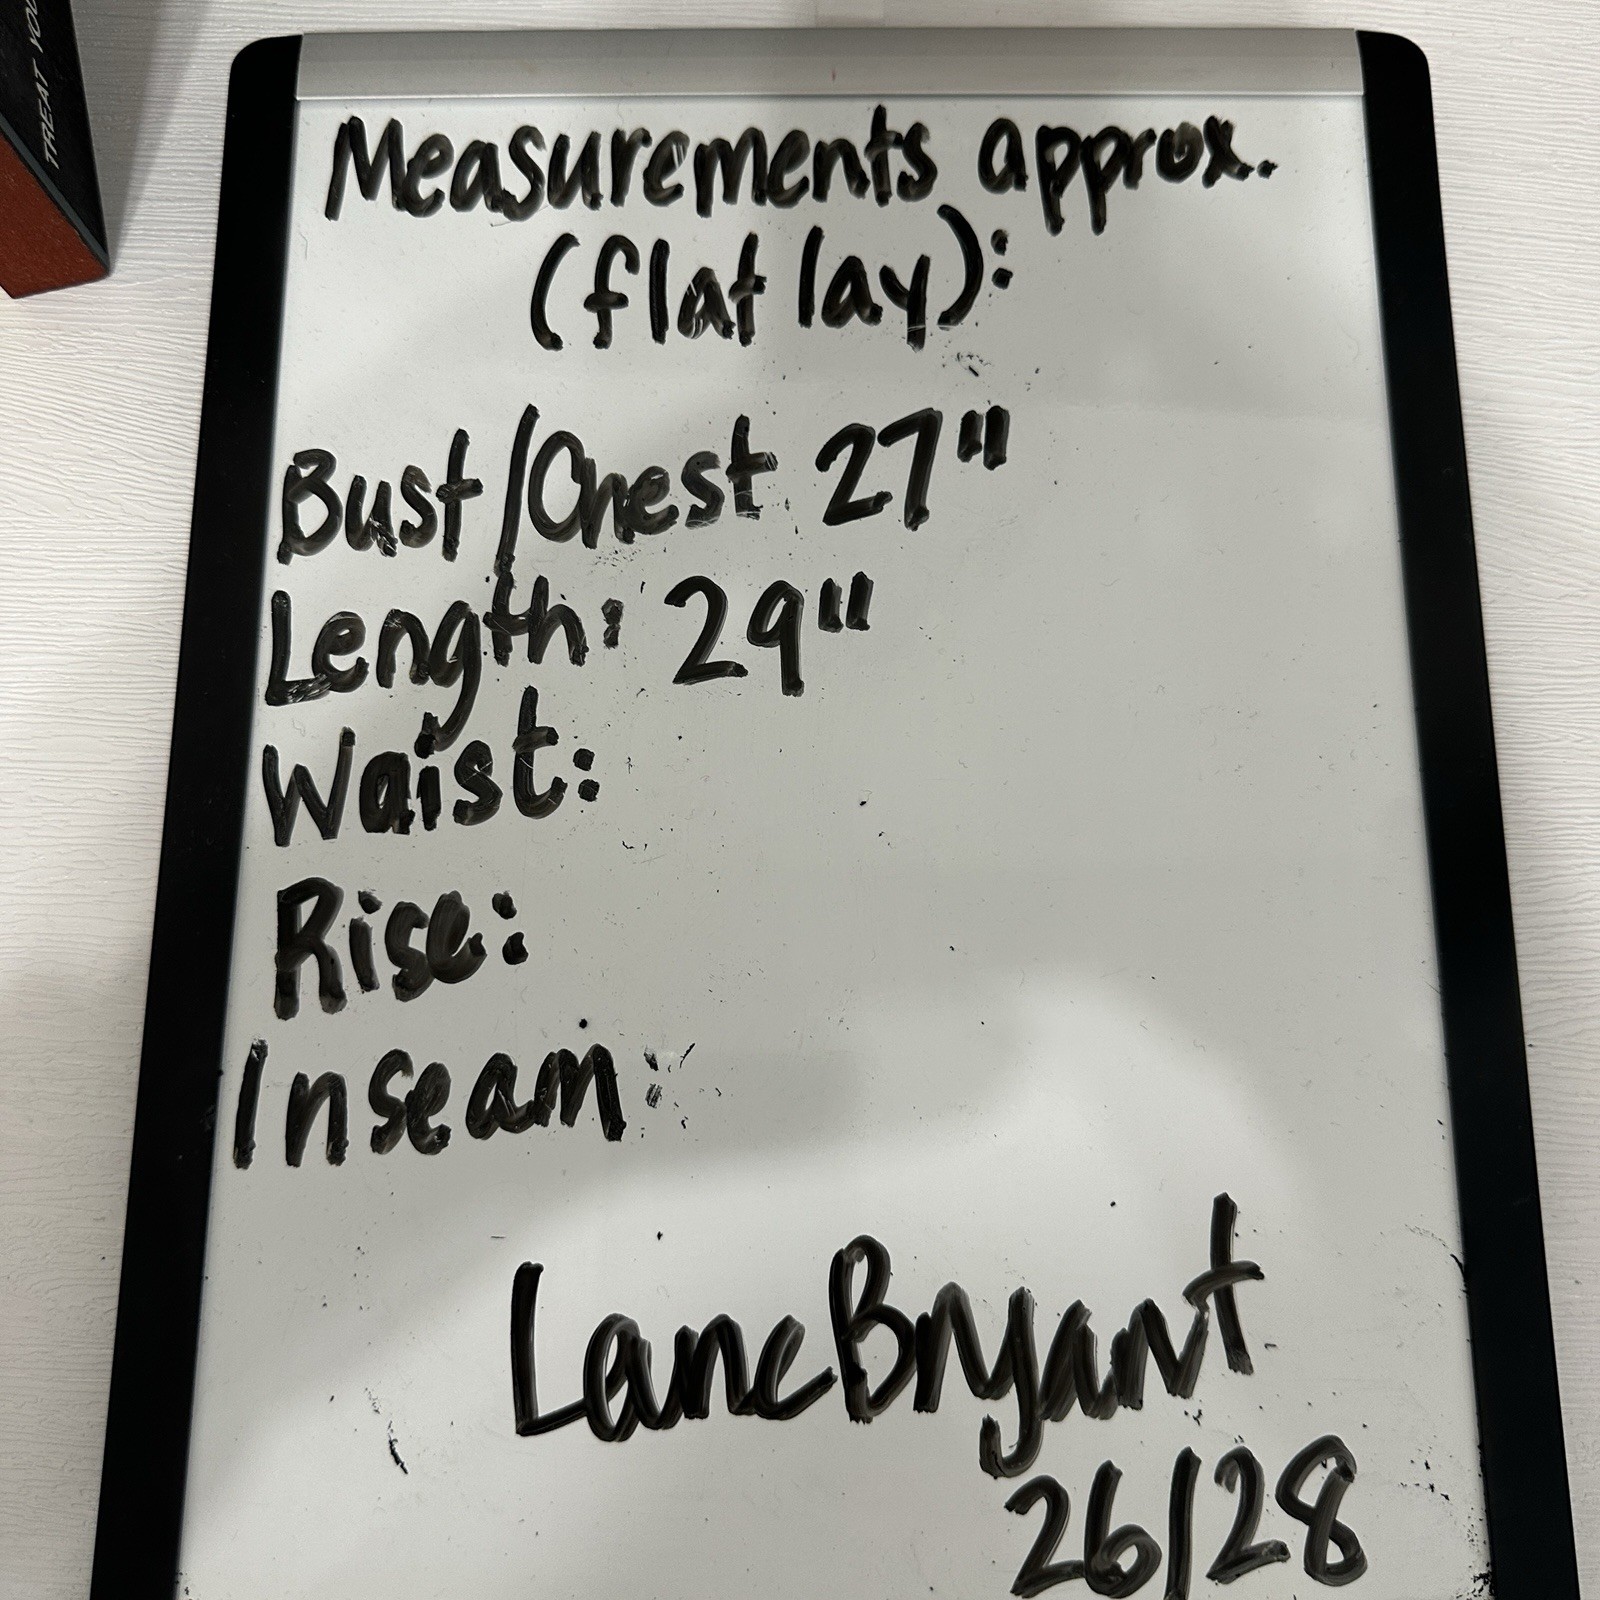 TREAT YOU
Measurements approx.
(flat lay):
Bust/Chest 27"
Length: 29"
Waist:
Rise:
Inseam:
LaneBryant
26/28